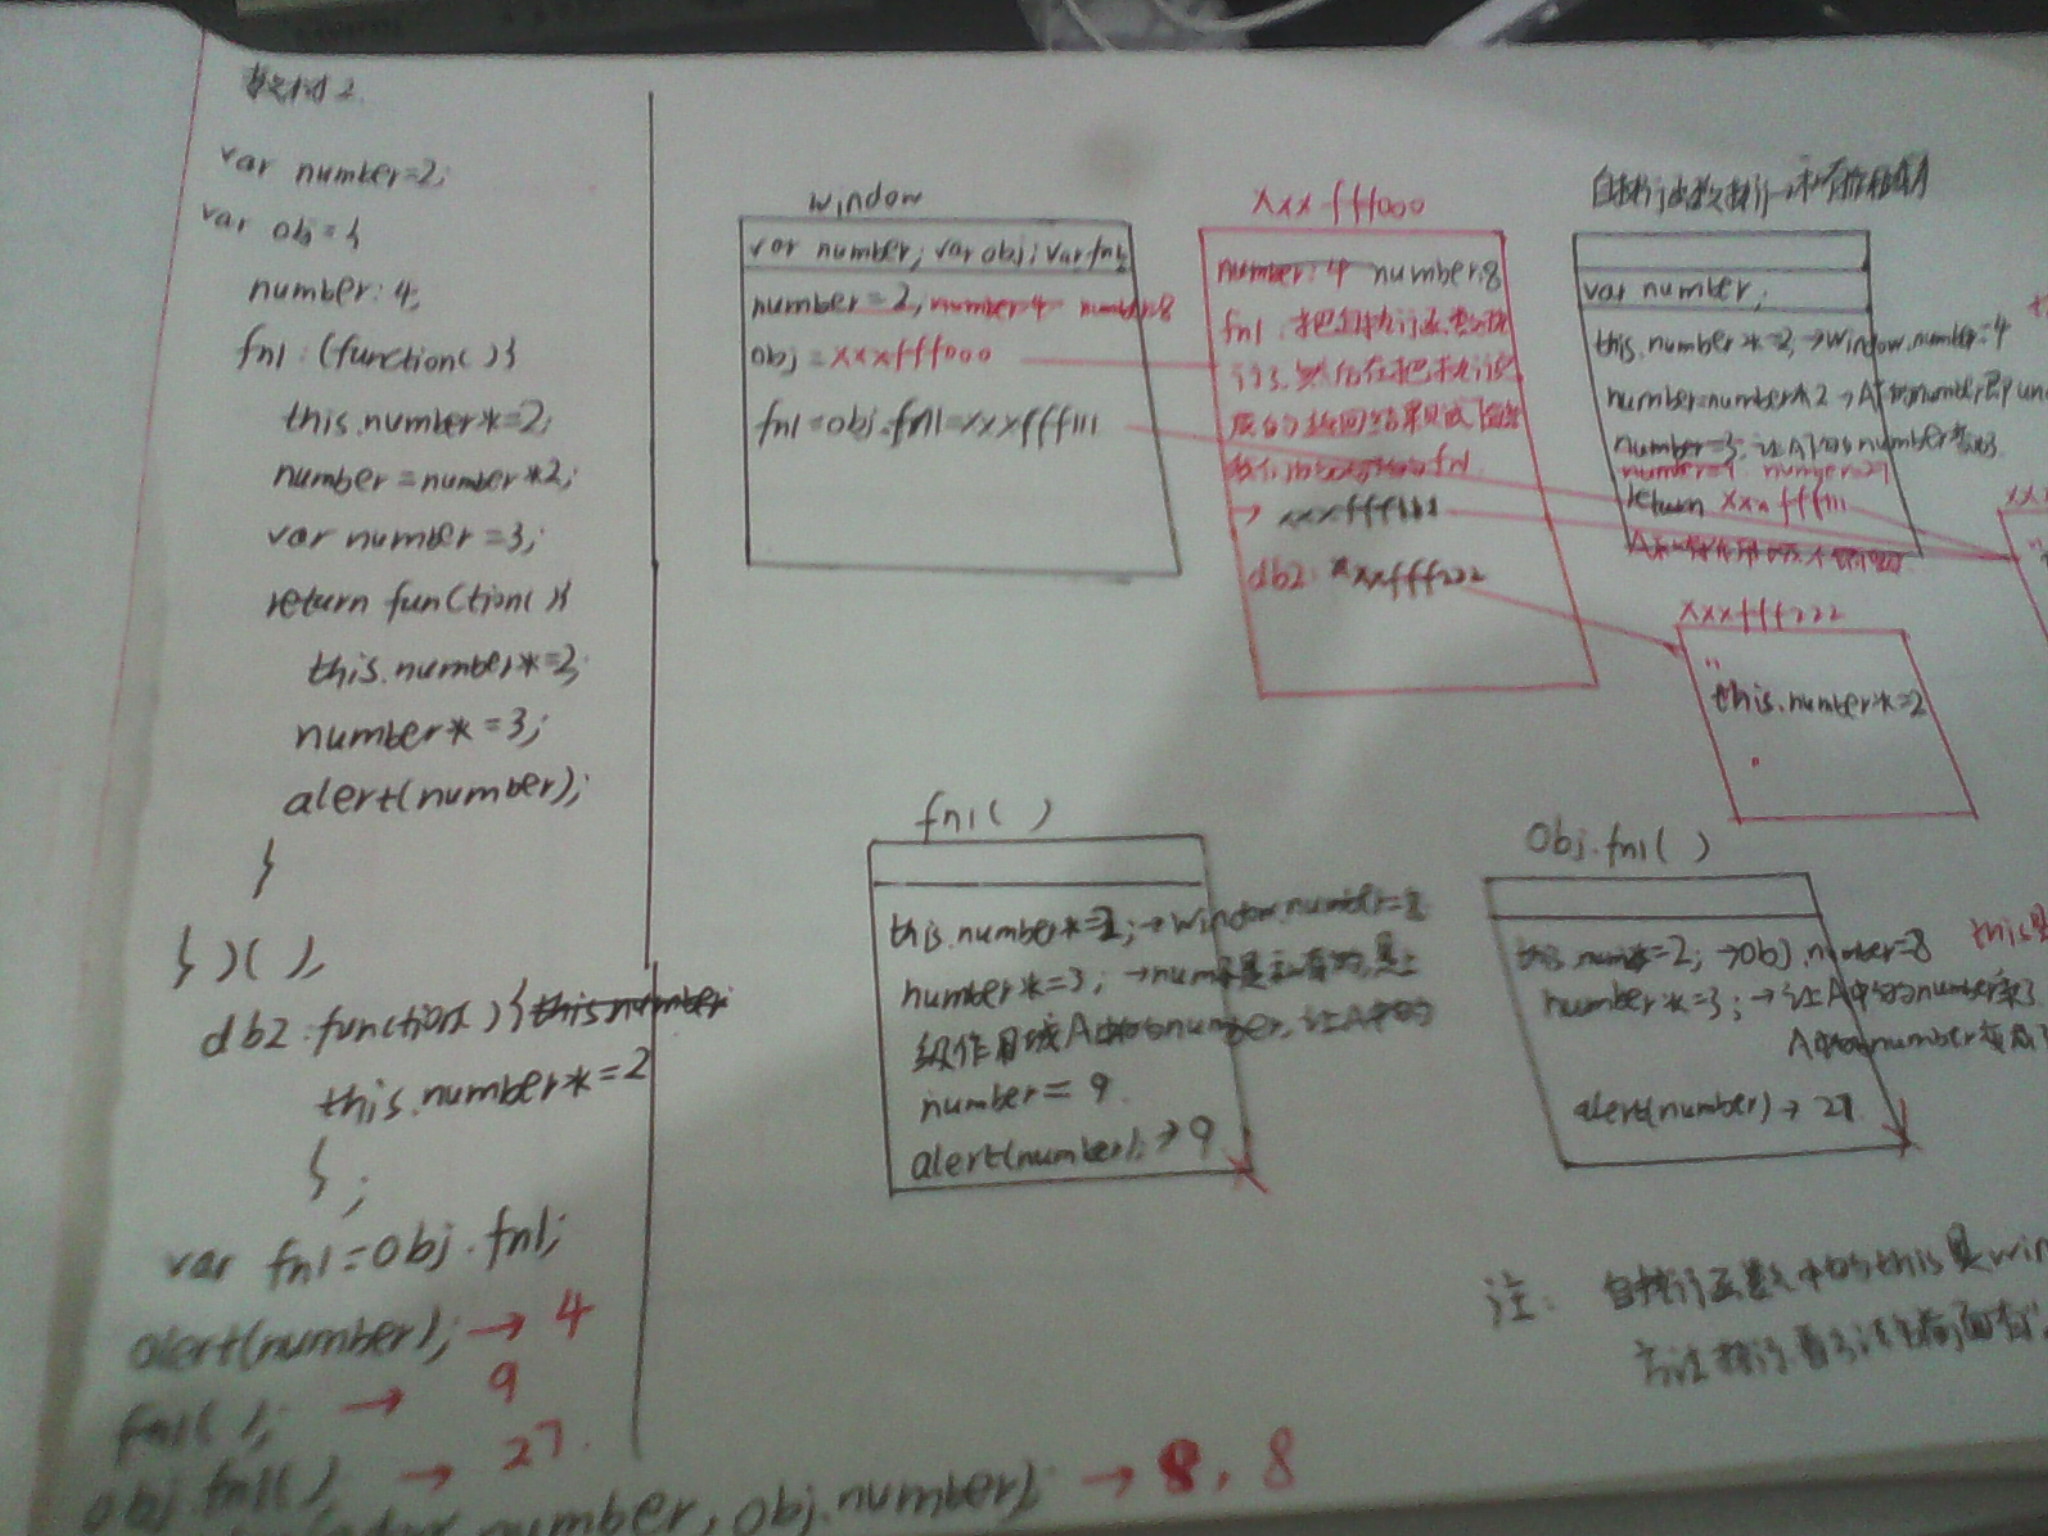 var number=2;
var obj={
number: 4,
fn1:(function(){
this.number*=2;
number=number*2;
var number=3;
return function(){
this.number*=2;
number*=3;
alert(number);
}
})(),
db2:function(){this.number
this.number*=2
};
var fn1=obj.fn1;
alert(number); → 4
fn1(); → 9
obj.fn1() → 27.
number, obj.number); → 8, 8
window
var number; var obj; var fn1;
number=2; number=4 number=8
obj=xxxfff000
fn1=obj.fn1=xxxfff111
xxxfff000
number:4 number:8
fn1:把自执行函数执
行了,然后在把执行完
后的返回结果赋
fn1
→ xxxfff111
db2: xxxfff222
自执行函数执行
var number;
this.number*=2;→window.number=4
number=number*2→A下的number
number=3;
number=9 number=27
return xxxfff111
xxxfff222
"
this.number*=2
"
fn1()
this.number*=2;→window.number=8
number*=3;→
级作用域A中的number,让A中的
number=9
alert(number);→9
obj.fn1()
this.num*=2;→obj.number=8 this是
number*=3;→让A中的number乘3
A中的number变成
alert(number)→27
注: 自执行函数中的this是win
方法执行看方法名前面有"